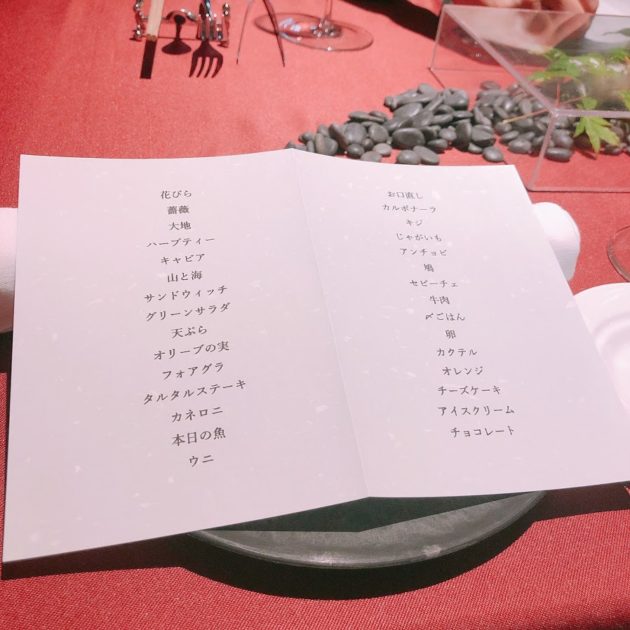 花びら
薔薇
大地
ハーブティー
キャビア
山と海
サンドウィッチ
グリーンサラダ
天ぷら
オリーブの実
フォアグラ
タルタルステーキ
カネロニ
本日の魚
ウニ
お口直し
カルボナーラ
キジ
じゃがいも
アンチョビ
鳩
セビーチェ
牛肉
〆ごはん
卵
カクテル
オレンジ
チーズケーキ
アイスクリーム
チョコレート